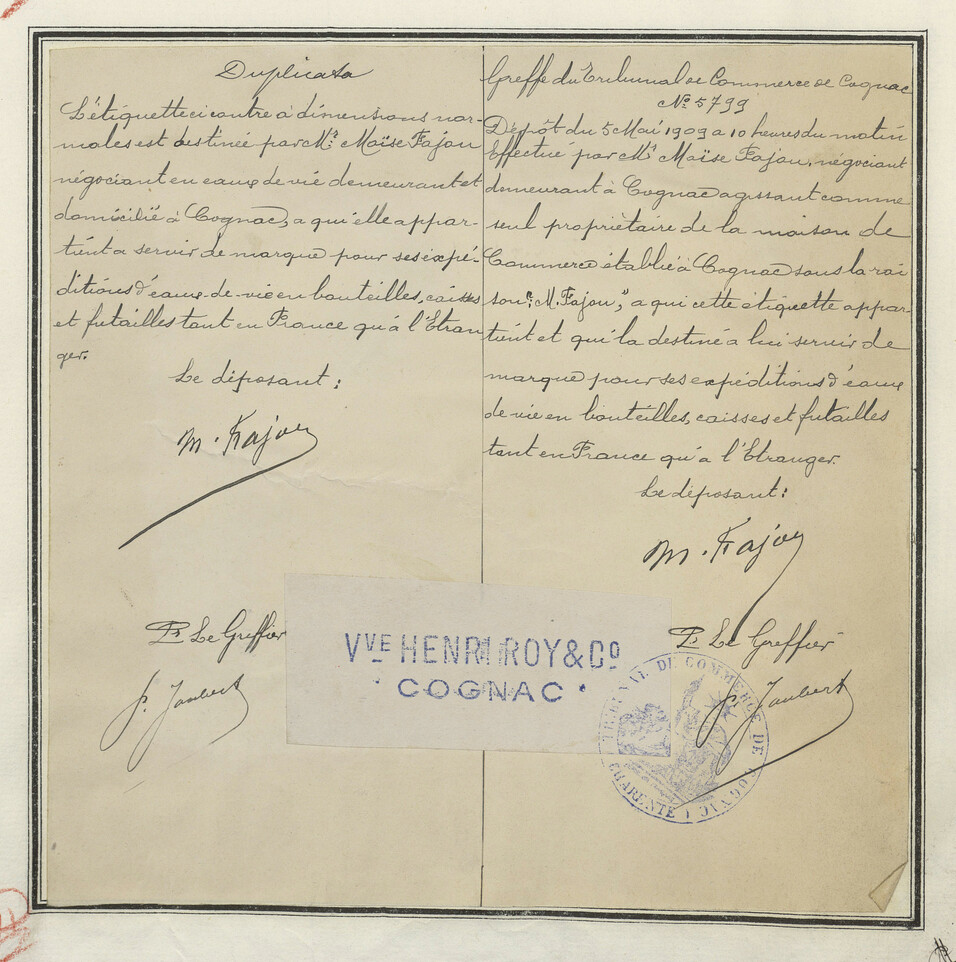 Duplicata
L'étiquette ci contre à dimensions nor-
males est destinée par Mr. Moïse Fajou
négociant en eaux de vie demeurant et
domicilié à Cognac, a qui elle appar-
tient a servir de marque pour ses expé-
ditions d'eaux-de-vie en bouteilles, caisses
et futailles tant en France qu'à l'Etran
ger.
Le déposant:
M. Fajou
Pr Le Greffier
P. Jaubert
Greffe du Tribunal de Commerce de Cognac
No. 5799
Dépôt du 5 Mai 1909 a 10 heures du matin
Effectué par Mr Moïse Fajou, négociant
demeurant à Cognac agissant comme
seul propriétaire de la maison de
Commerce établie à Cognac sous la rai
son "M. Fajou," a qui cette étiquette appar-
tient et qui la destine a lui servir de
marque pour ses expéditions d'eaux
de vie en bouteilles, caisses et futailles
tant en France qu'a l'Etranger.
Le déposant:
M. Fajou
Pr Le Greffier
P. Jaubert
VVE HENRI ROY & Co
COGNAC
TRIBUNAL DE COMMERCE DE COGNAC
CHARENTE